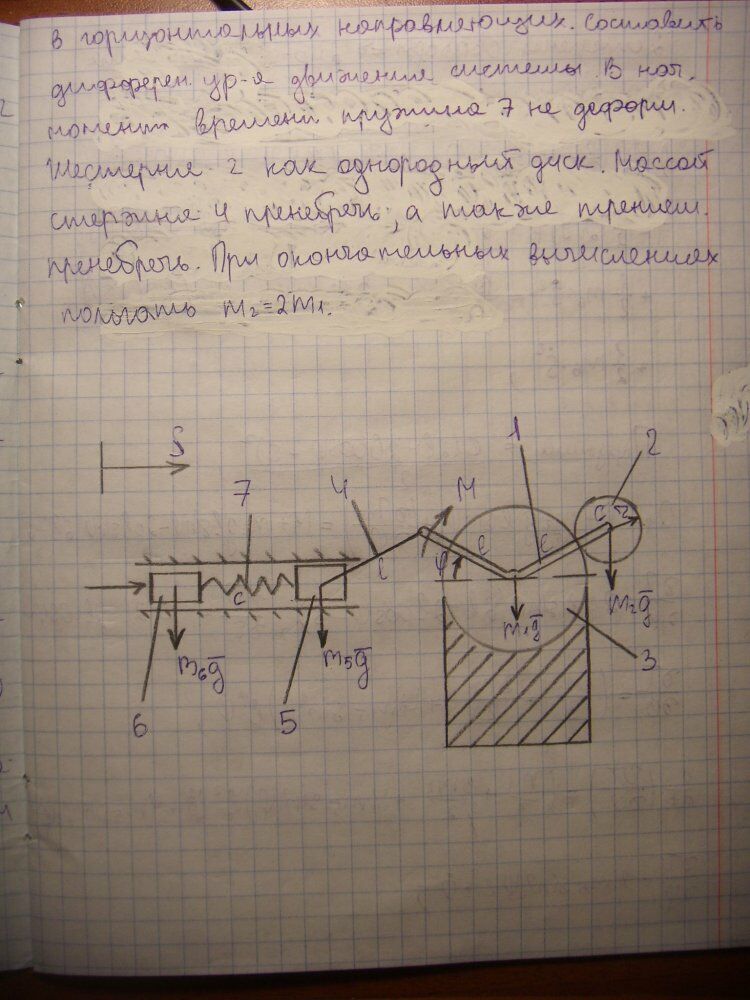 в горизонтальных направляющих. Составить
дифферен. ур-я движения системы. В нач.
момент времени пружина 7 не деформ.
Шестерня 2 как однородный диск. Массой
стержня 4 пренебречь, а также трением.
пренебречь. При окончательных вычислениях
полагать m₂=2m₁.
S
7
4
M
1
2
l
φ
l
l
c
r
c
m₁g̅
m₂g̅
3
m₆g̅
m₅g̅
6
5